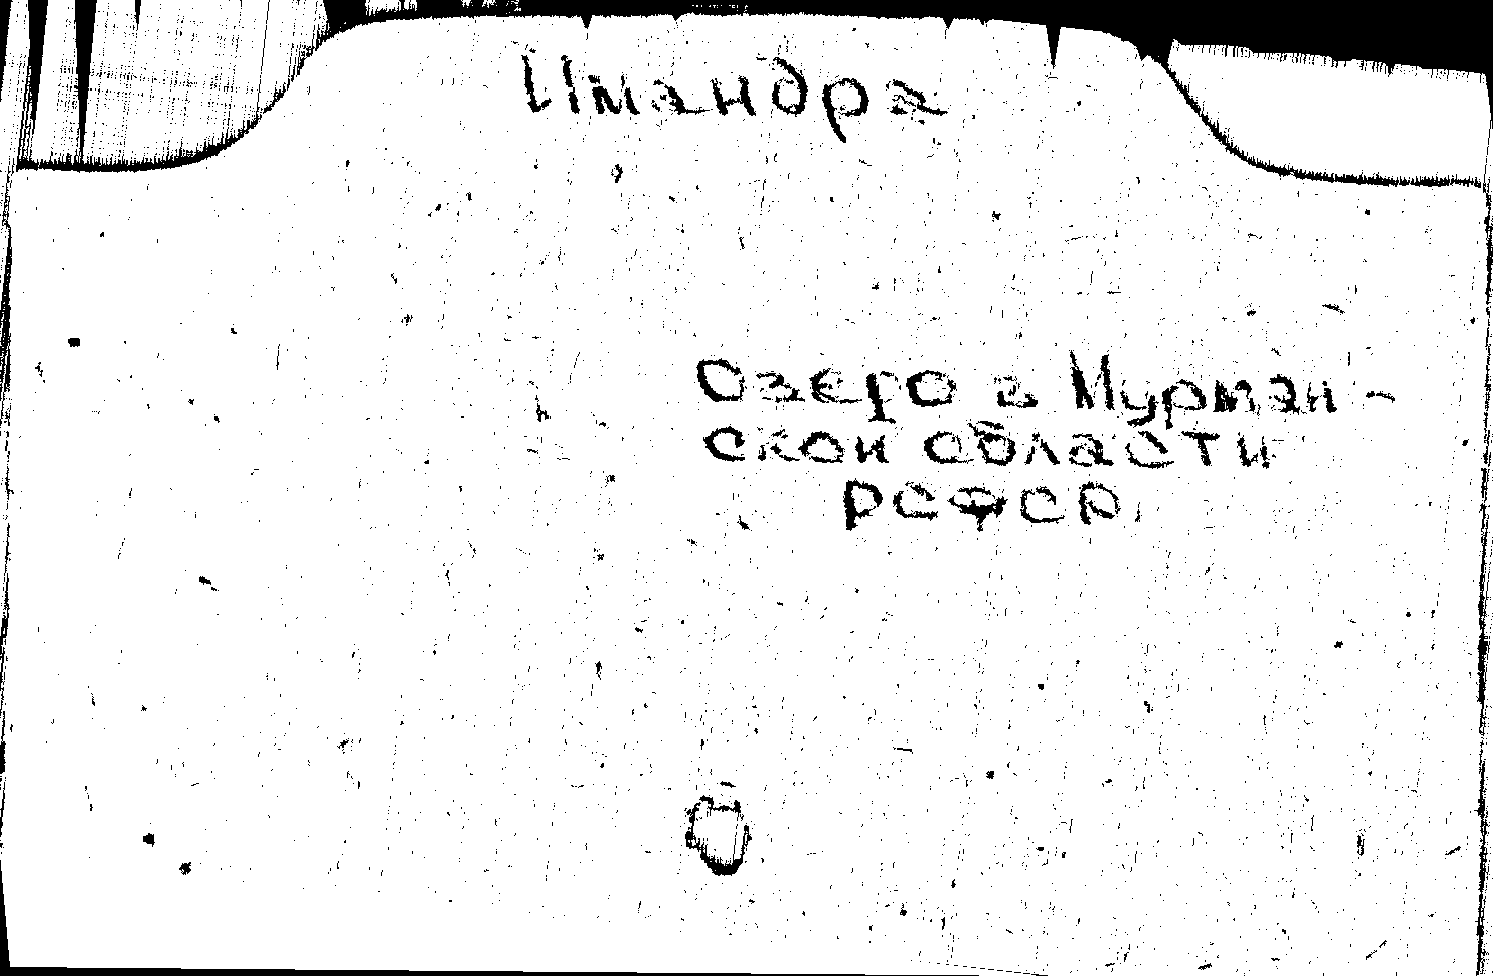 Имандра
Озеро в Мурман-
ской области
РСФСР